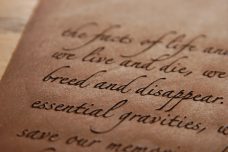 the facts of life and
we live and die, we
breed and disappear.
essential gravities, w
save our memories